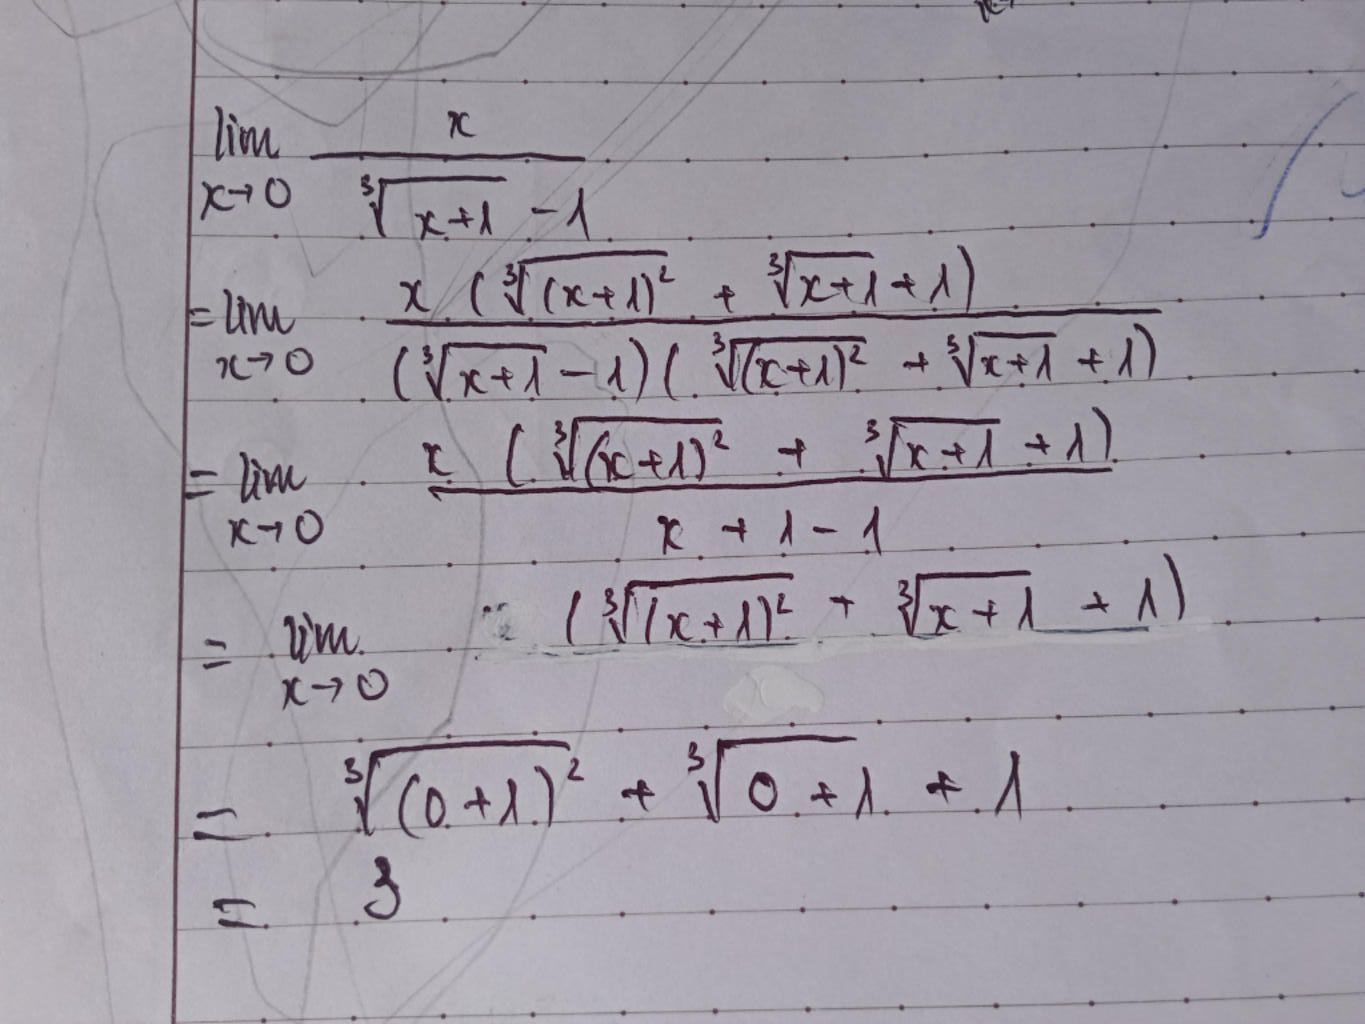 lim x→0 x / (∛(x+1) - 1)
= lim x→0 x (∛((x+1)²) + ∛(x+1) + 1) / ((∛(x+1) - 1) (∛((x+1)²) + ∛(x+1) + 1))
= lim x→0 x (∛((x+1)²) + ∛(x+1) + 1) / (x + 1 - 1)
= lim x→0 (∛((x+1)²) + ∛(x+1) + 1)
= ∛((0+1)²) + ∛(0+1) + 1
= 3